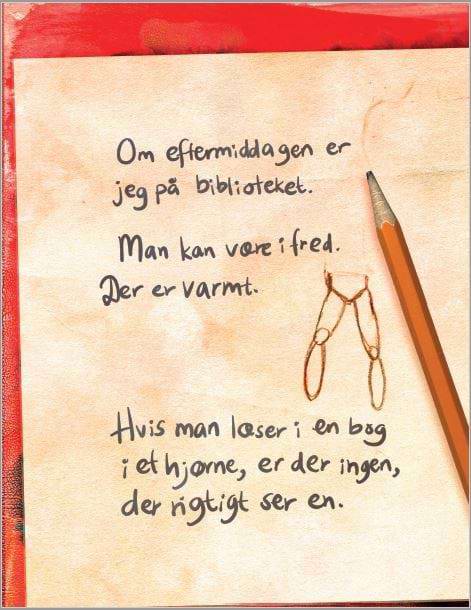 Om eftermiddagen er
jeg på biblioteket.
Man kan være i fred.
Der er varmt.
Hvis man læser i en bog
i et hjørne, er der ingen,
der rigtigt ser en.